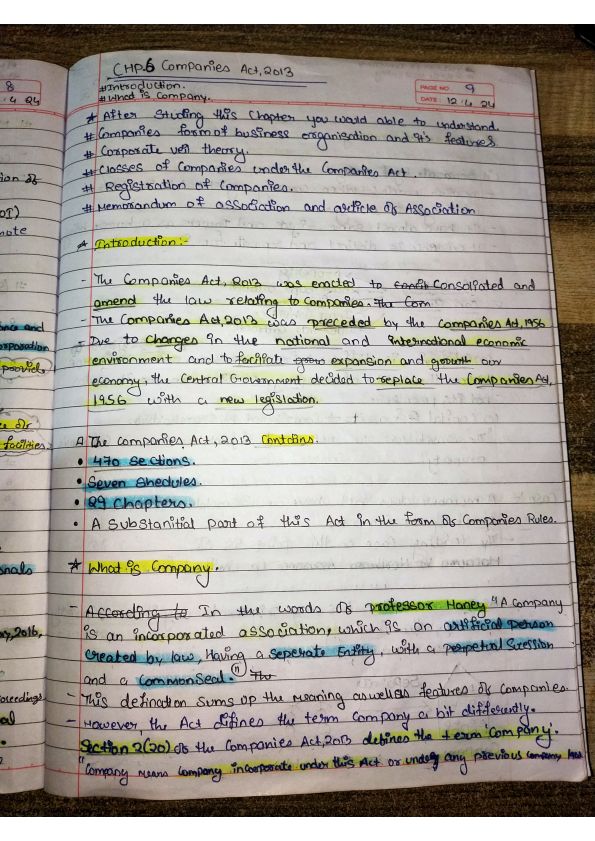 8
4 24
CHP.6 Companies Act, 2013
#Introduction.
#What is Company.
PAGE NO. 9
DATE: 12.4.24
★ After Studing this Chapter you would able to understand.
# Companies form of business organisation and it's features
# Corporate veil theory.
# Classes of Companies under the Companies Act.
# Registration of Companies.
# Memorandum of association and article of Association
★ Introduction:-
- The Companies Act, 2013 was enacted to Consoliated and
amend the law relating to companies. The Com
- The Companies Act, 2013 was preceded by the companies Act, 1956
- Due to changes in the national and international economic
environment and to faciliate grow expansion and growth our
economy, the Central Government decided to replace the Companies Act,
1956 with a new legislation.
The Companies Act, 2013 Contains.
• 470 Sections.
• Seven Shedules.
• 29 Chapters.
• A Substanitial part of this Act in the form of Companies Rules.
★ What is Company.
- According to In the words of professor Haney "A Company
is an incorporated association, which is an artificial person
created by law, Having a seperate Entity, with a perpetual Sucession
and a Common Seal. " The
- This defination sums up the Meaning as well as features of Companies.
- However, the Act difines the term Company a bit differently.
Section 2(20) of the Companies Act, 2013 defines the term 'Company'.
"Company means company incorporate under this Act or under any previous company law